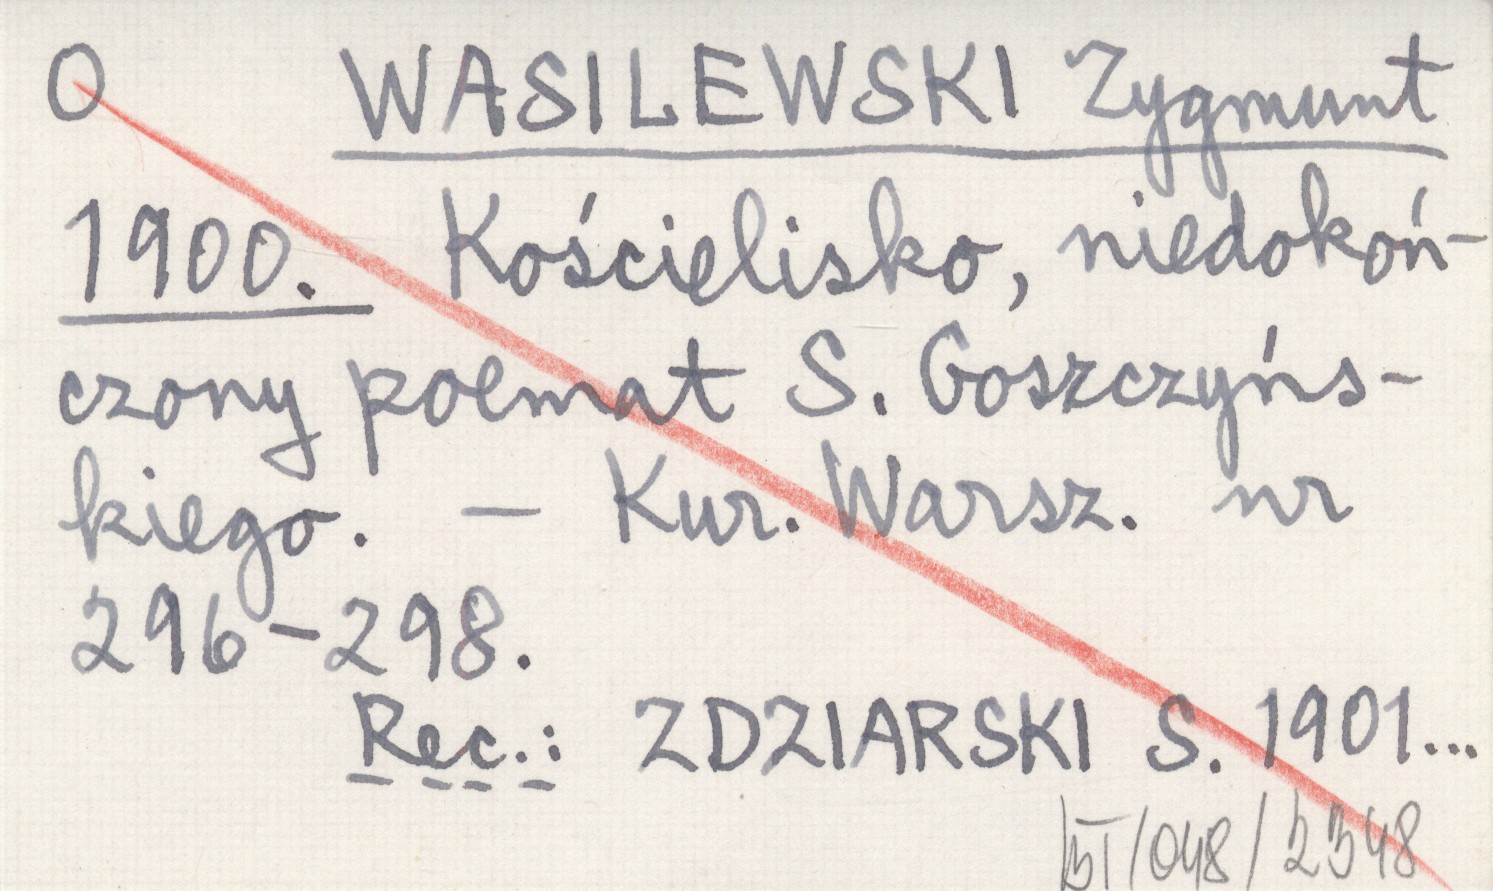 O WASILEWSKI Zygmunt
1900. Kościelisko, niedokoń-
czony poemat S. Goszczyńs-
kiego. — Kur. Warsz. nr
296-298.
Rec.: ZDZIARSKI S. 1901...
/048/2348